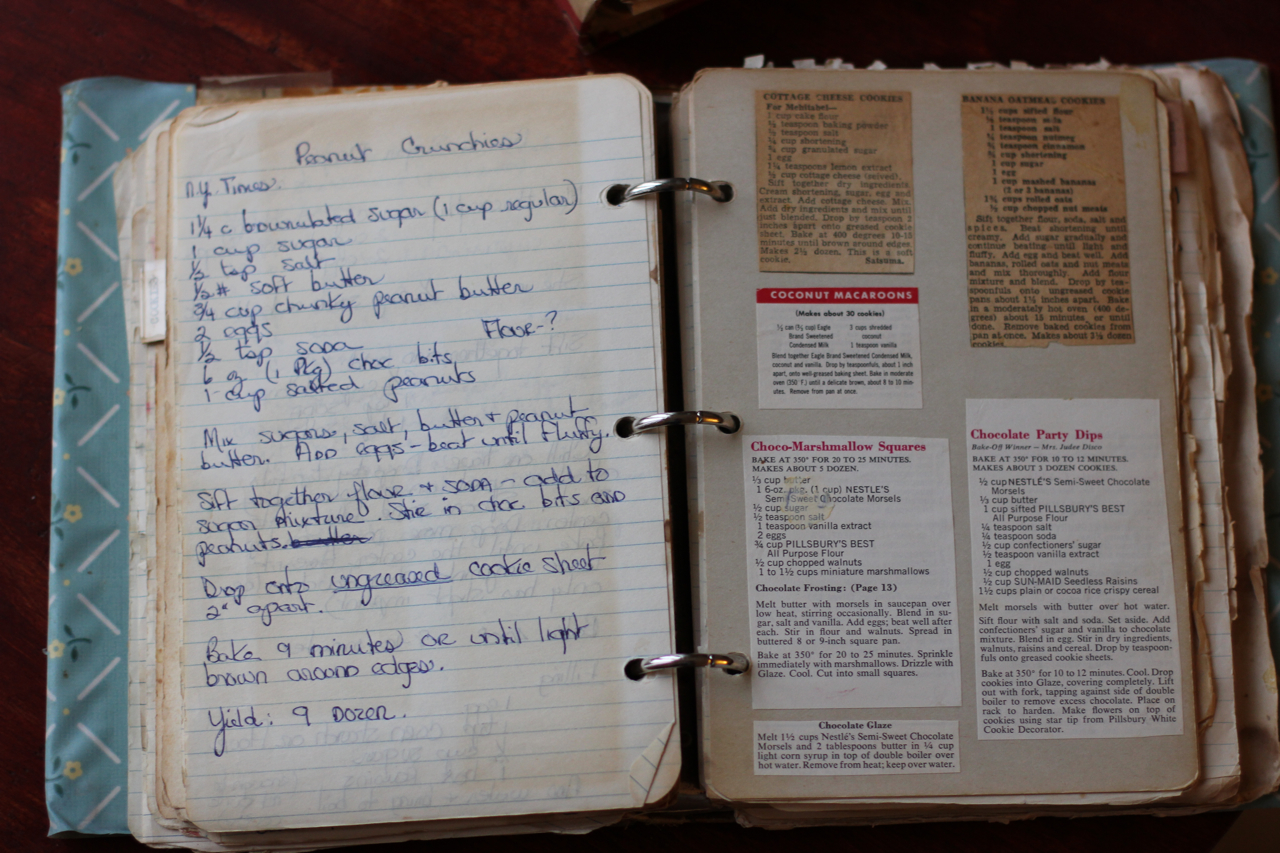 Peanut Crunchies
N.Y. Times.
1¼ c brownulated sugar (1 cup regular)
1 cup sugar
½ tsp salt
½# soft butter
¾ cup chunky peanut butter
2 eggs
Flour-?
½ tsp soda
6 oz (1 Pkg) choc bits
1 cup salted peanuts
Mix sugars, salt, butter + peanut
butter. ADD eggs - beat until fluffy.
Sift together flour + SODA - add to
sugar mixture. Stir in choc bits AND
peanuts. butter
Drop onto ungreased cookie sheet
2" apart.
Bake 9 minutes or until light
brown around edges.
Yield: 9 DOZEN.
COTTAGE CHEESE COOKIES
For Mehitabel—
1 cup cake flour
teaspoon baking powder
teaspoon salt
cup shortening
cup granulated sugar
1 egg
1¼ teaspoons lemon extract
cup cottage cheese (seived).
Sift together dry ingredients.
Cream shortening, sugar, egg and
extract. Add cottage cheese. Mix.
Add dry ingredients and mix until
just blended. Drop by teaspoon 2
inches apart onto greased cookie
sheet. Bake at 400 degrees 10-15
minutes until brown around edges.
Makes 2½ dozen. This is a soft
cookie. Satsuma.
COCONUT MACAROONS
(Makes about 30 cookies)
⅔ can (⅔ cup) Eagle
Brand Sweetened
Condensed Milk
3 cups shredded
coconut
1 teaspoon vanilla
Blend together Eagle Brand Sweetened Condensed Milk,
coconut and vanilla. Drop by teaspoonfuls, about 1 inch
apart, onto well-greased baking sheet. Bake in moderate
oven (350°F.) until a delicate brown, about 8 to 10 min-
utes. Remove from pan at once.
Choco-Marshmallow Squares
BAKE AT 350° FOR 20 TO 25 MINUTES.
MAKES ABOUT 5 DOZEN.
⅓ cup butter
1 6-oz. pkg. (1 cup) NESTLÉ'S
Semi-Sweet Chocolate Morsels
½ cup sugar
½ teaspoon salt
1 teaspoon vanilla extract
2 eggs
¾ cup PILLSBURY'S BEST
All Purpose Flour
½ cup chopped walnuts
1 to 1½ cups miniature marshmallows
Chocolate Frosting: (Page 13)
Melt butter with morsels in saucepan over
low heat, stirring occasionally. Blend in su-
gar, salt and vanilla. Add eggs; beat well after
each. Stir in flour and walnuts. Spread in
buttered 8 or 9-inch square pan.
Bake at 350° for 20 to 25 minutes. Sprinkle
immediately with marshmallows. Drizzle with
Glaze. Cool. Cut into small squares.
Chocolate Glaze
Melt 1½ cups Nestlé's Semi-Sweet Chocolate
Morsels and 2 tablespoons butter in ¼ cup
light corn syrup in top of double boiler over
hot water. Remove from heat; keep over water.
BANANA OATMEAL COOKIES
1½ cups sifted flour
teaspoon soda
1 teaspoon salt
teaspoon nutmeg
teaspoon cinnamon
cup shortening
1 cup sugar
1 egg
1 cup mashed bananas
(2 or 3 bananas)
1¾ cups rolled oats
cup chopped nut meats
Sift together flour, soda, salt and
spices. Beat shortening until
creamy. Add sugar gradually and
continue beating until light and
fluffy. Add egg and beat well. Add
bananas, rolled oats and nut meats
and mix thoroughly. Add flour
mixture and blend. Drop by tea-
spoonfuls onto ungreased cookie
pans about 1½ inches apart. Bake
in a moderately hot oven (400 de-
grees) about 15 minutes, or until
done. Remove baked cookies from
pan at once. Makes about 3½ dozen
cookies.
Chocolate Party Dips
Bake-Off Winner — Mrs. Judee Disco
BAKE AT 350° FOR 10 TO 12 MINUTES.
MAKES ABOUT 3 DOZEN COOKIES.
½ cup NESTLÉ'S Semi-Sweet Chocolate
Morsels
⅓ cup butter
1 cup sifted PILLSBURY'S BEST
All Purpose Flour
¼ teaspoon salt
¼ teaspoon soda
½ cup confectioners' sugar
½ teaspoon vanilla extract
1 egg
½ cup chopped walnuts
½ cup SUN-MAID Seedless Raisins
1½ cups plain or cocoa rice crispy cereal
Melt morsels with butter over hot water.
Sift flour with salt and soda. Set aside. Add
confectioners' sugar and vanilla to chocolate
mixture. Blend in egg. Stir in dry ingredients,
walnuts, raisins and cereal. Drop by teaspoon-
fuls onto greased cookie sheets.
Bake at 350° for 10 to 12 minutes. Cool. Drop
cookies into Glaze, covering completely. Lift
out with fork, tapping against side of double
boiler to remove excess chocolate. Place on
rack to harden. Make flowers on top of
cookies using star tip from Pillsbury White
Cookie Decorator.